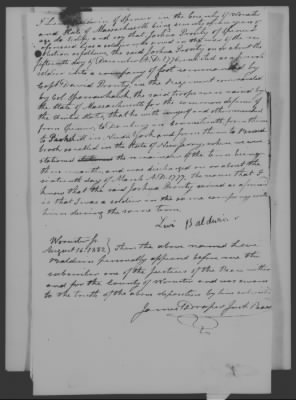 I Levi Baldwin of Spencer in the County of Worcester
and State of Massachusetts being seventy years of
age do testify and say that Joshua Prouty of
aforesaid was a soldier in the
Revolution as follows, the said Joshua Prouty on or about the
fifteenth day of December A.D. 1776 enlisted as a private
soldier into a company of foot commanded by
Capt. David Prouty, in the Regiment commanded
by Col. the said troops were raised by
the State of Massachusetts for the common defence of
the United States, that he with myself and others marched
from Spencer to Danbury in Connecticut from thence
to Peekskill in New York and from thence to Bound
brook so called in the State of New Jersey where we were
stationed the remainder of the time for
three months, and was discharged on or about the
sixteenth day of March A.D. 1777, the reason that I
know that the said Joshua Prouty served as aforesaid
is that I was a soldier in the same company with
him during the same term
Levi Baldwin
Worcester ss
August 16th 1832 } Then the above named Levi
Baldwin personally appeared before me the
subscriber one of the Justices of the Peace within
and for the County of Worcester and was sworn
to the truth of the above deposition by him subscribed
James Draper Just. Peace